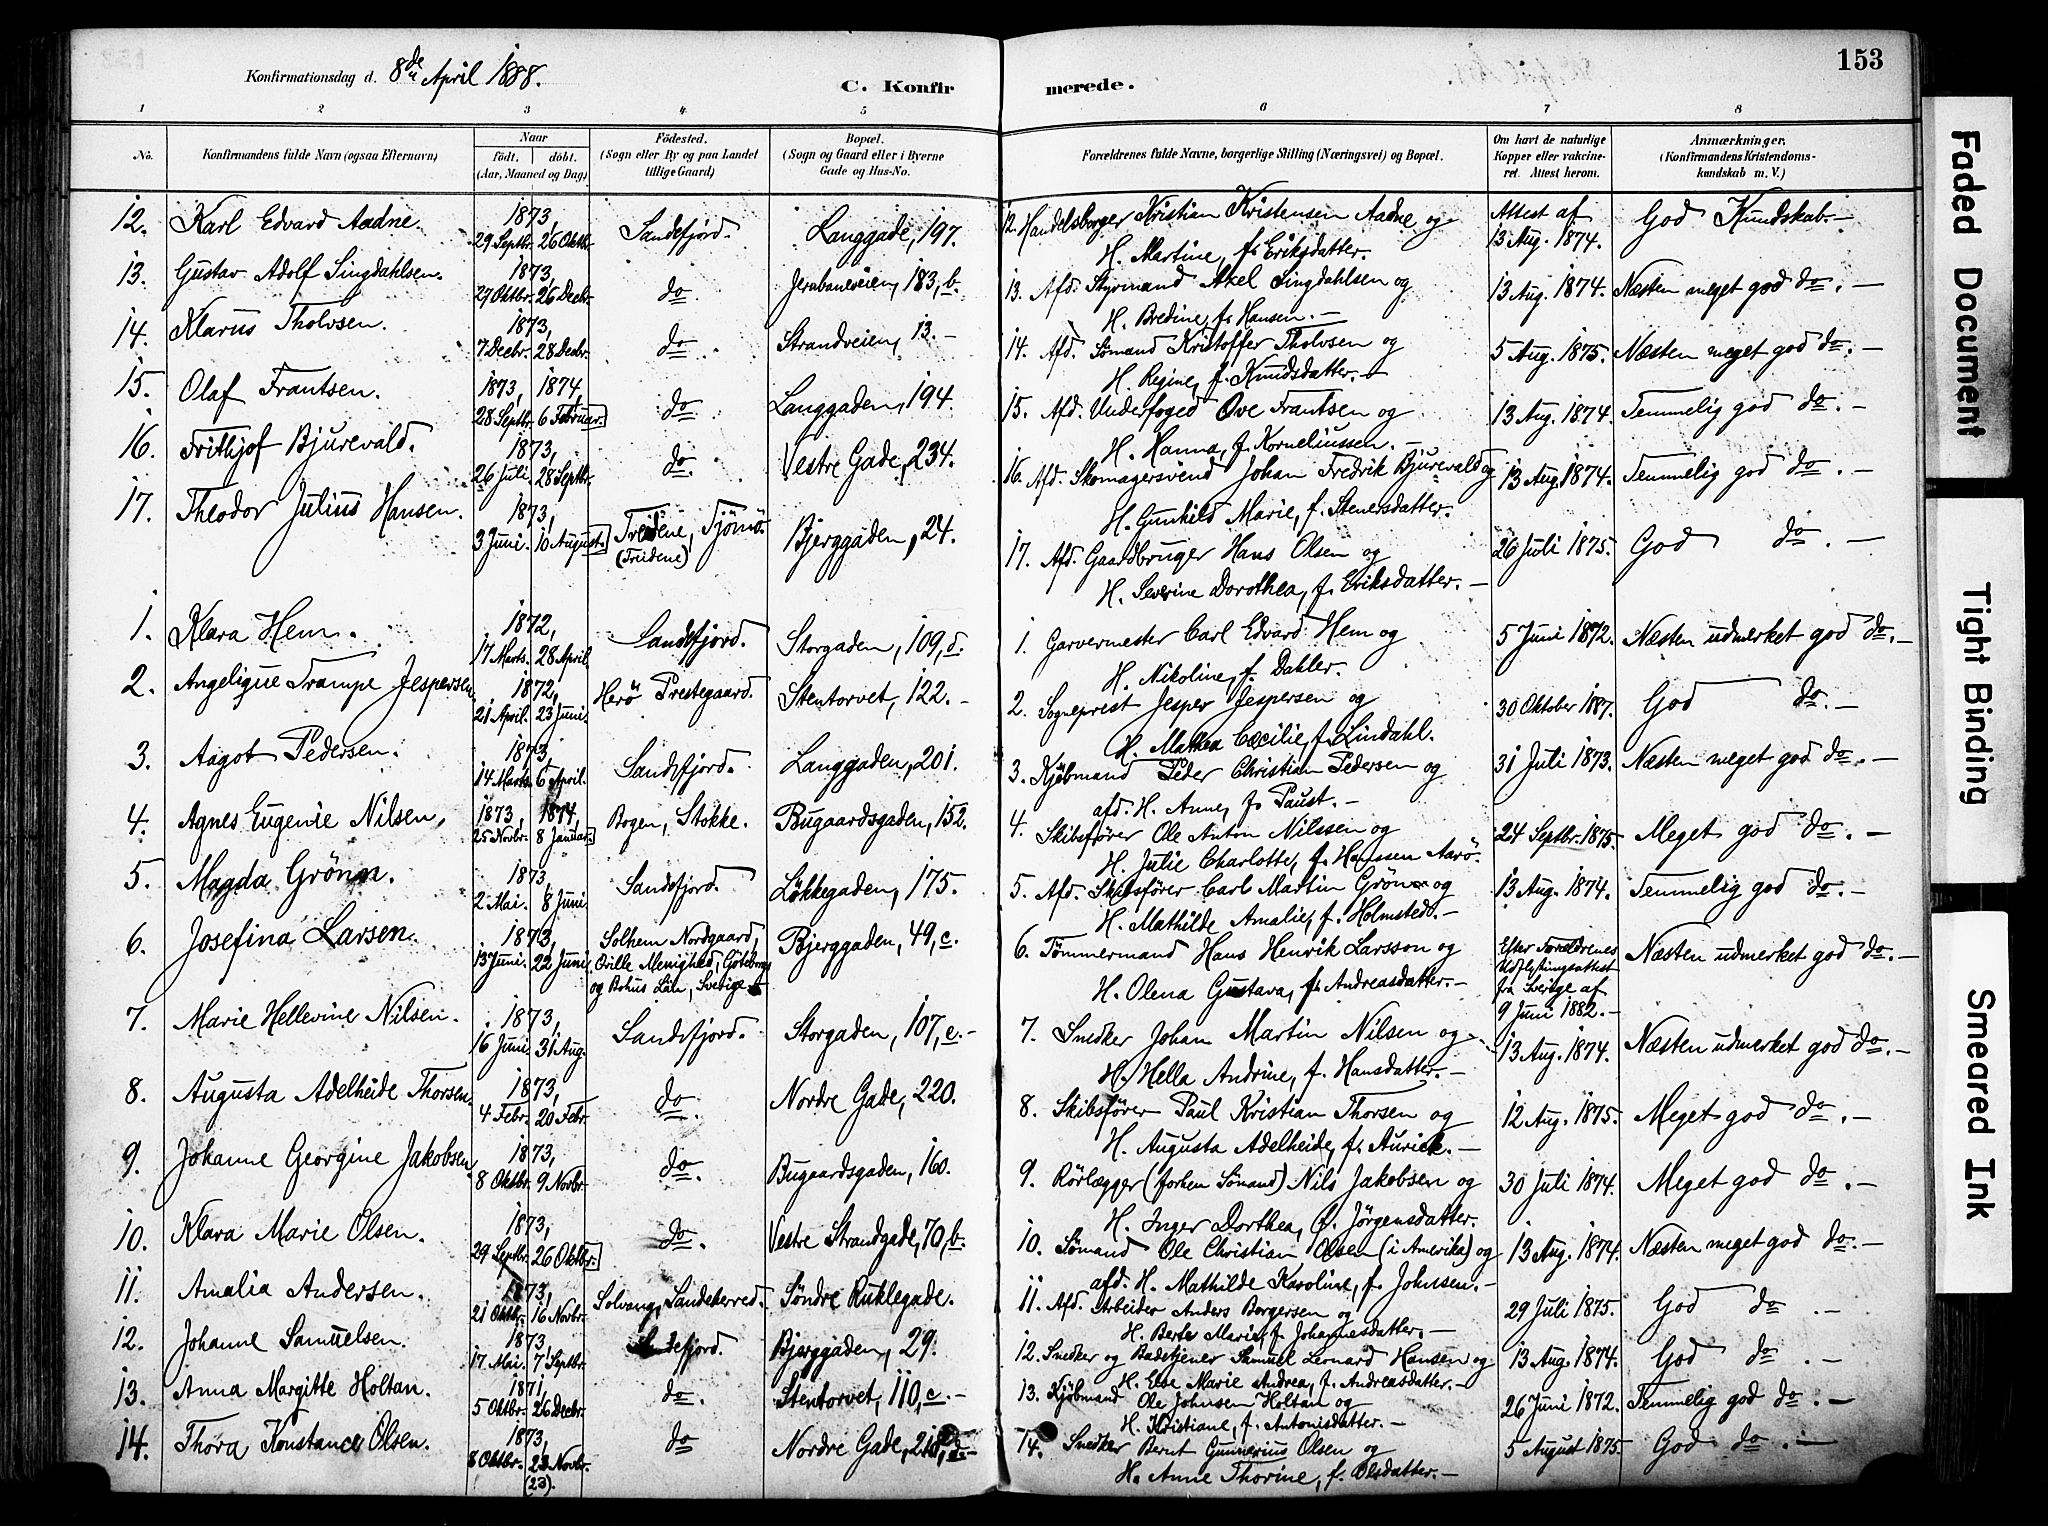 153
Konfirmationsdag d. 8de April 1888.
C. Konfir
merede.
1 2 3 4 5 6 7 8
No. Konfirmandens fulde Navn (ogsaa Efternavn) Naar födt. döbt. (Aar, Maaned og Dag) Födested. (Sogn eller By og paa Landet tillige Gaard) Bopæl. (Sogn og Gaard eller i Byerne Gade og Hus-No.
Forældrenes fulde Navne, borgerlige Stilling (Næringsvei) og Bopæl. Om havt de naturlige Kopper eller vakcineret. Attest herom. Anmærkninger. (Konfirmandens Kristendomskundskab m. V.)
12. Karl Edvard Aadne. 1873, 29 Septbr. 26 Oktbr. Sandefjord. Langgade, 197.
12. Handelsborger Kristian Kristensen Aadne og Attest af 13 Aug. 1874. God Kundskab. —
H. Martine, f. Eriksdatter.
13. Gustav Adolf Lingdahlsen. 1873, 27 Oktbr. 26 Decbr. do Jernbaneveien, 183, b.
13. Afd. Styrmand Axel Lingdahlsen og 13 Aug. 1874. Næsten meget god do. —
H. Bredine, f. Hansen. —
14. Klarus Tholvsen. 1873, 7 Decbr. 28 Decbr. do Strandveien, 13. —
14. Afd. Sömand Kristoffer Tholvsen og 5 Aug. 1875. Næsten meget god do. —
H. Regine, f. Knudsdatter. —
15. Olaf Frantsen. 1873, 28 Septbr. 1874, 6 Februar. do Langgaden, 194.
15. Afd. Underfoged Ove Frantsen og 13 Aug. 1874. Temmelig god do. —
H. Hanna, f. Korneliussen. —
16. Frithjof Bjurevald. 1873, 26 Juli 28 Septbr. do Vestre Gade, 234.
16. Afd. Skomagersvend Johan Fredrik Bjurevald og 13 Aug. 1874. Temmelig god do. —
H. Gunhild Marie, f. Stenersdatter.
17. Theodor Julius Hansen. 1873, 3 Juni. 10 August. Tredene, Tjömö. (Treidene) Bjerggaden, 24.
17. Afd. Gaardbruger Hans Olsen og 26 Juli 1875. God do. —
H. Severine Dorothea, f. Eriksdatter. —
1. Klara Hem. 1872, 17 Marts. 28 April. Sandefjord. Storgaden, 109, d.
1. Garvermester Carl Edvard Hem og 5 Juni 1872. Næsten udmerket god do. —
H. Nikoline, f. Dahler.
2. Angelique Trampe Jespersen. 1872, 21 April. 23 Juni. Herö Prestegaard. Stentorvet, 122. —
2. Sogneprest Jesper Jespersen og 30 Oktober 1887. God do. —
H. Mathea Cecilie, f. Lindahl.
3. Aagot Pedersen. 1873, 14 Marts. 6 April. Sandefjord. Langgaden, 201.
3. Kjöbmand Peder Christian Pedersen og 31 Juli 1873. Næsten meget god do. —
afd. H. Anne, f. Paust. —
4. Agnes Eugenie Nilsen, 1873, 25 Novbr. 1874, 8 Januar. Bogen, Stokke. Bugaardsgaden, 152.
4. Skibsförer Ole Anton Nilssen og 24 Septbr. 1875. Meget god do. —
H. Julie Charlotte, f. Hanssen Aarö.
5. Magda Grönn. 1873, 2 Mai. 8 Juni Sandefjord. Løkkegaden, 175.
5. Afd. Skibsförer Carl Martin Grönn og 13 Aug. 1874. Temmelig god do. —
H. Mathilde Amalie, f. Holmsted. —
6. Josefina Larsen. 1873, 13 Juni. 22 Juni. Solhem Nordgaard, Qville Menighed, Göteborgs og Bohus Län, Sverige. Bjerggaden, 49, c.
6. Tömmermand Hans Henrik Larsson og Efter Forældrenes Udflytningsattest fra Sverige af 9 Juni 1882. — Næsten udmerket god do. —
H. Olena Gustava, f. Andreasdatter. —
7. Marie Hellevine Nilsen. 1873, 16 Juni. 31 Aug. Sandefjord. Storgaden, 107, e. —
7. Snedker Johan Martin Nilsen og 13 Aug. 1874. Næsten udmerket god do. —
H. Hella Andrine, f. Hansdatter. —
8. Augusta Adelheide Thorsen. 1873, 4 Febr. 20 Febr. do Nordre Gade, 220.
8. Skibsförer Paul Kristian Thorsen og 12 Aug. 1875. Meget god do. —
H. Augusta Adelheide, f. Aurick. —
9. Johanne Georgine Jakobsen. 1873, 8 Oktbr. 9 Novbr. do. Bugaardsgaden, 160.
9. Rörlægger (forhen Sömand) Nils Jakobsen og 30 Juli 1874. Meget god do. —
H. Inger Dorthea, f. Jörgensdatter.
10. Klara Marie Olsen. 1873, 29 Septbr. 26 Oktbr. do. Vestre Strandgade, 70, b.
10. Sömand Ole Christian Olsen (i Amerika) og 13 Aug. 1874. Næsten meget god do. —
afd. H. Mathilde Karoline, f. Johnsen. —
11. Amalia Andersen. 1873, 21 Oktbr. 16 Novbr. Solvang, Sandeherred. Söndre Ruklegade.
11. Afd. Arbeider Anders Borgersen og 29 Juli 1875. God do. —
H. Berte Marie, f. Johannesdatter. —
12. Johanne Samuelsen. 1873, 17 Mai. 7 Septbr. Sandefjord. Bjerggaden, 29.
12. Snedker og Badetjener Samuel Leonard Hansen og 13 Aug. 1874. God do. —
H. Else Marie Andrea, f. Andreasdatter. —
13. Anna Margitte Holtan. 1871, 5 Oktbr. 26 Decbr. do. Stentorvet, 110, c. —
13. Kjöbmand Ole Johnsen Holtan og 26 Juni 1872. Temmelig god do. —
H. Kristiane, f. Antonisdatter. —
14. Thora Konstance Olsen. 1873, 8 Oktbr. 23 Novbr. (23). do Nordre Gade,
14. Snedker Bernt Gunnerius Olsen og 5 August 1875. God do. —
H. Anne Thorine, f. Olsdatter. —
Faded Document
Tight Binding
Smeared Ink